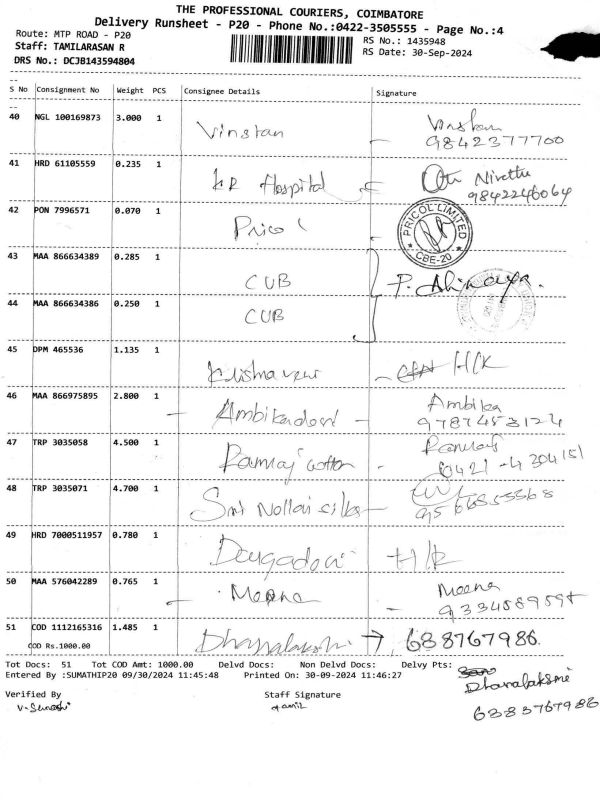 THE PROFESSIONAL COURIERS, COIMBATORE
Delivery Runsheet - P20 - Phone No.:0422-3505555 - Page No.:4
Route: MTP ROAD - P20
RS No.: 1435948
Staff: TAMILARASAN R
RS Date: 30-Sep-2024
DRS No.: DCJB143594804
S No Consignment No Weight PCS Consignee Details Signature
40 NGL 100169873 3.000 1 Vinstan - Vinstan
9842377700
41 HRD 61105559 0.235 1 KR Hospital Nivetha
9842246064
42 PON 7996571 0.070 1 Pricol
PRICOL LIMITED
CBE-20
43 MAA 866634389 0.285 1 CUB P. Abinaya.
44 MAA 866634386 0.250 1 CUB
45 DPM 465536 1.135 1 - H/K
46 MAA 866975895 2.800 1 - Ambikadevi - Ambika
9787453124
47 TRP 3035058 4.500 1 Ramraj cotton - Ramraj
0421-4304151
48 TRP 3035071 4.700 1 Sri Nallai silks -
9566555568
49 HRD 7000511957 0.780 1 H/R
50 MAA 576042289 0.765 1 - Meena - Meena
51 COD 1112165316 1.485 1 Dhanalakshmi → 638767986
COD Rs.1000.00
Tot Docs: 51 Tot COD Amt: 1000.00 Delvd Docs: Non Delvd Docs: Delvy Pts:
Entered By :SUMATHIP20 09/30/2024 11:45:48 Printed On: 30-09-2024 11:46:27
Dhanalaksmi
6383767986
Verified By Staff Signature
Tamil